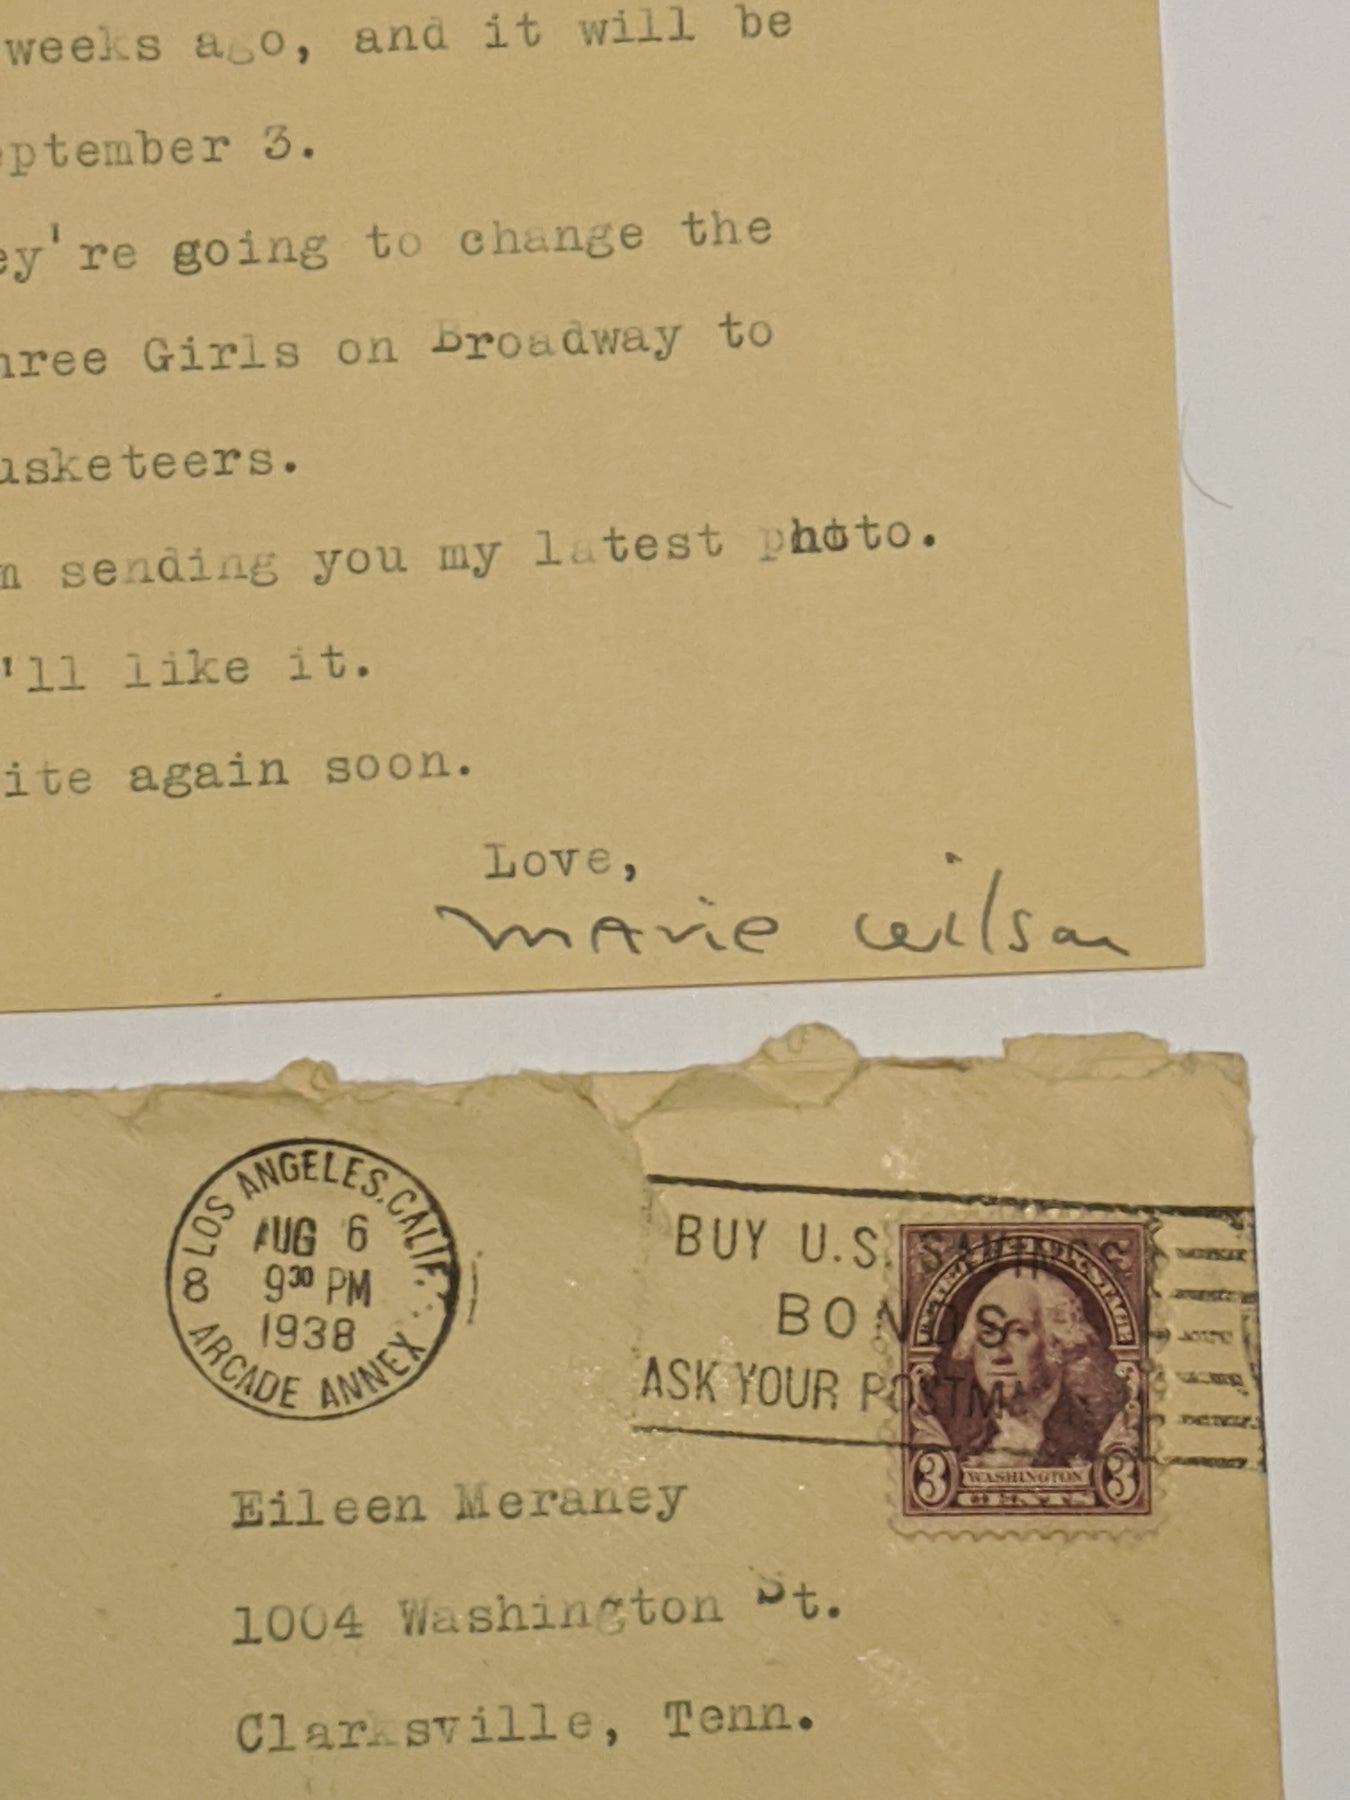 weeks ago, and it will be
eptember 3.
ey're going to change the
hree Girls on Broadway to
usketeers.
m sending you my latest photo.
'll like it.
ite again soon.
Love,
Marie Wilson
LOS ANGELES, CALIF.
AUG 6
9 30 PM
1938
8
ARCADE ANNEX
BUY U.S. SAVINGS
BONDS
ASK YOUR POSTMASTER
3 WASHINGTON 3
Eileen Meraney
1004 Washington St.
Clarksville, Tenn.